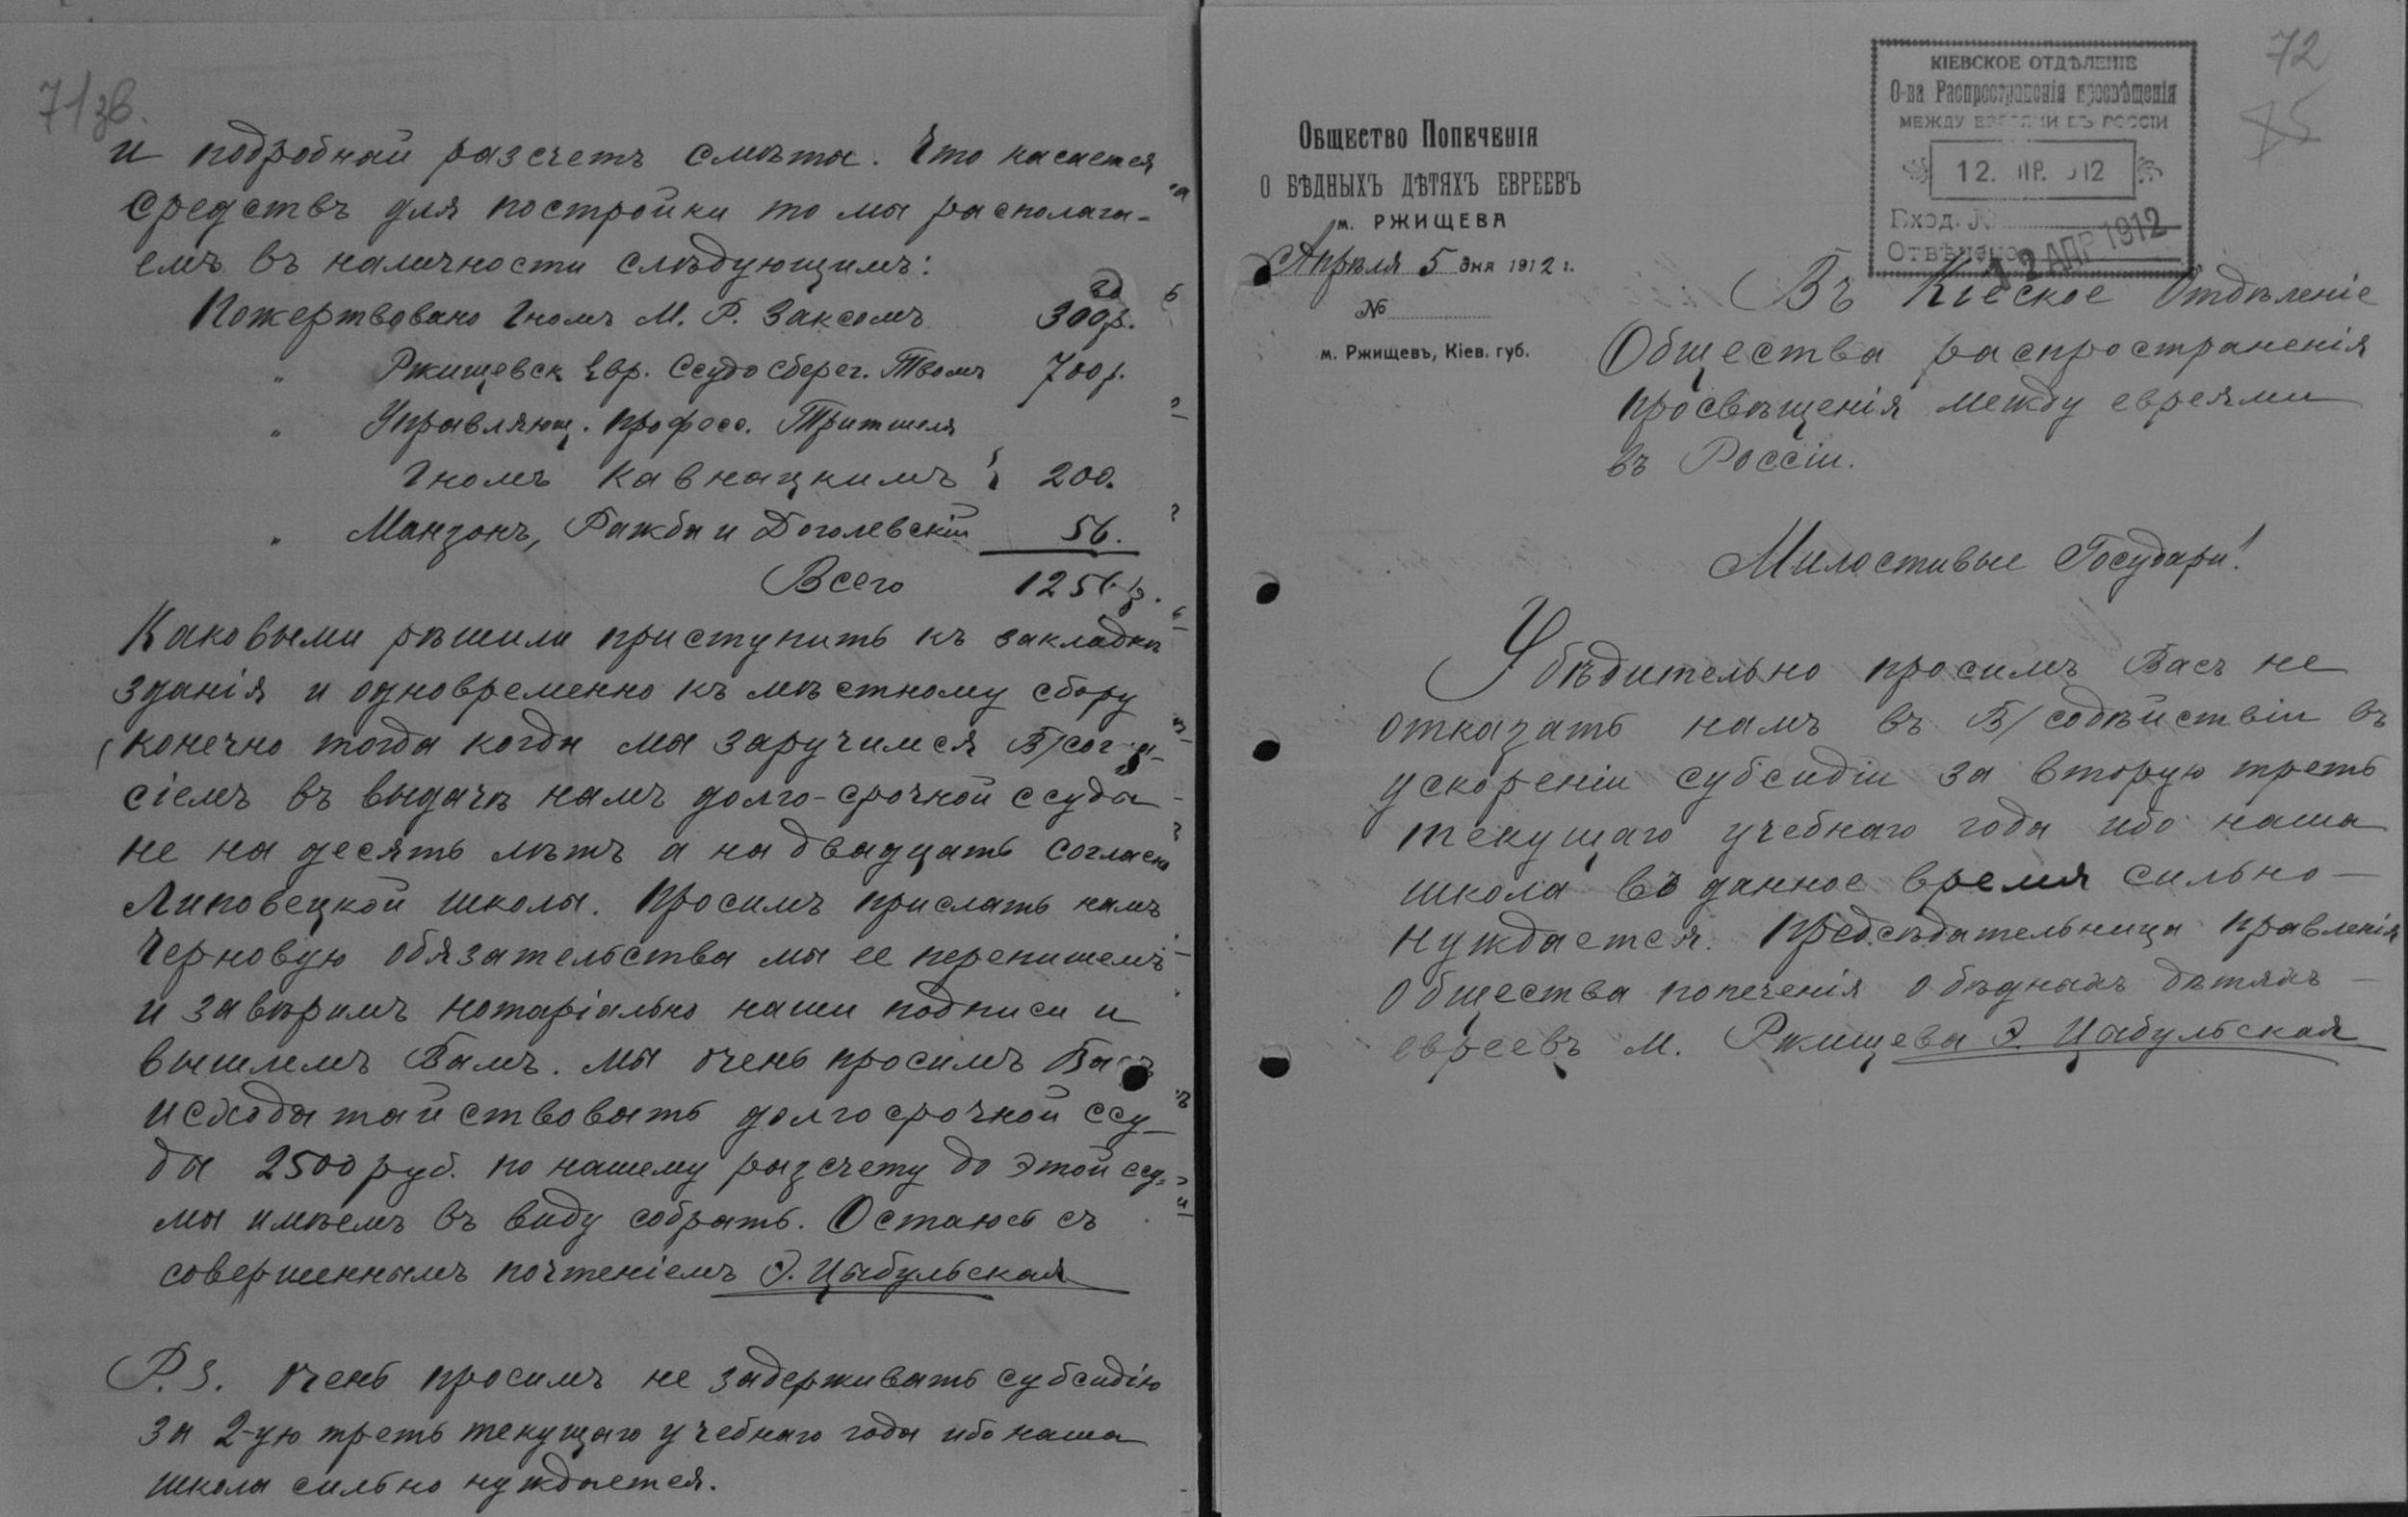 71зв.
и подробный разсчетъ смѣты. Что касается
средствъ для постройки то мы располага-
емъ въ наличности слѣдующимъ:
Пожертвовано Гномъ М. Р. Заксомъ 300р.
" Ржищевск Евр. Ссудо Сберег. Твомъ 700р.
" Управляющ. професс. Тритшеля
Гномъ Кавнацкимъ 200.
" Манзонъ, Ражба и Боголевскій 56.
Всего 1256 р.
Каковыми рѣшили приступить къ закладкѣ
зданія и одновременно къ мѣстному сбору
конечно тогда когда мы заручимся В/согла-
сіемъ въ выдачѣ намъ долго-срочной ссуды
не на десять лѣтъ а на двадцать согласно
Липовецкой школы. Просимъ прислать намъ
черновую обязательства мы ее перепишемъ
и завѣримъ нотаріально наши подписи и
вышлемъ Вамъ. Мы очень просимъ Васъ
исходатайствовать долгосрочной ссу-
ды 2500 руб. по нашему разсчету до этой
мы имѣемъ въ виду собрать. Остаюсь съ
совершеннымъ почтеніемъ Э. Цыбульская
P.S. Очень просимъ не задерживать субсидію
за 2-ую треть текущаго учебнаго года ибо наша
школа сильно нуждается.
72
75
КІЕВСКОЕ ОТДѢЛЕНІЕ
О-ва Распространенія просвѣщенія
МЕЖДУ ЕВРЕЯМИ ВЪ РОССІИ
12. АПР. 912
Вход. №
Отвѣчено
12 АПР 1912
Общество Попеченія
О БѢДНЫХЪ ДѢТЯХЪ ЕВРЕЕВЪ
м. РЖИЩЕВА
Апрѣля 5 дня 1912 г.
№
м. Ржищевъ, Кіев. губ.
Въ Кіеское Отдѣленіе
Общества распространенія
просвѣщенія между евреями
въ Россіи.
Милостивые Государи!
Убѣдительно просимъ Васъ не
отказать намъ въ В/содѣйствіи въ
ускореніи субсидіи за вторую треть
текущаго учебнаго года ибо наша
школа въ данное время сильно
нуждается. Предсѣдательница правленія
Общества попеченія о бѣдныхъ дѣтяхъ
евреевъ м. Ржищева Э. Цыбульская